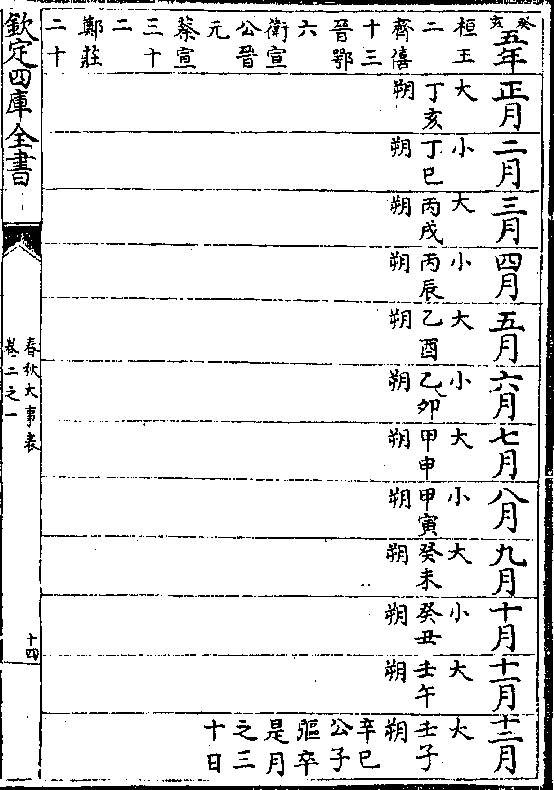 癸亥五年
桓王
二
齊僖
十三
晉鄂
六
衛宣
公晉
元
蔡宣
三十
二
鄭莊
二十
正月
大
丁亥
朔
二月
小
丁巳
朔
三月
大
丙戌
朔
四月
小
丙辰
朔
五月
大
乙酉
朔
六月
小
乙卯
朔
七月
大
甲申
朔
八月
小
甲寅
朔
九月
大
癸未
朔
十月
小
癸丑
朔
十一月
大
壬午
朔
十二月
大
壬子
朔
辛巳
公子
彄卒
是月
之三
十日
欽定四庫全書
春秋大事表
卷二之一
十四